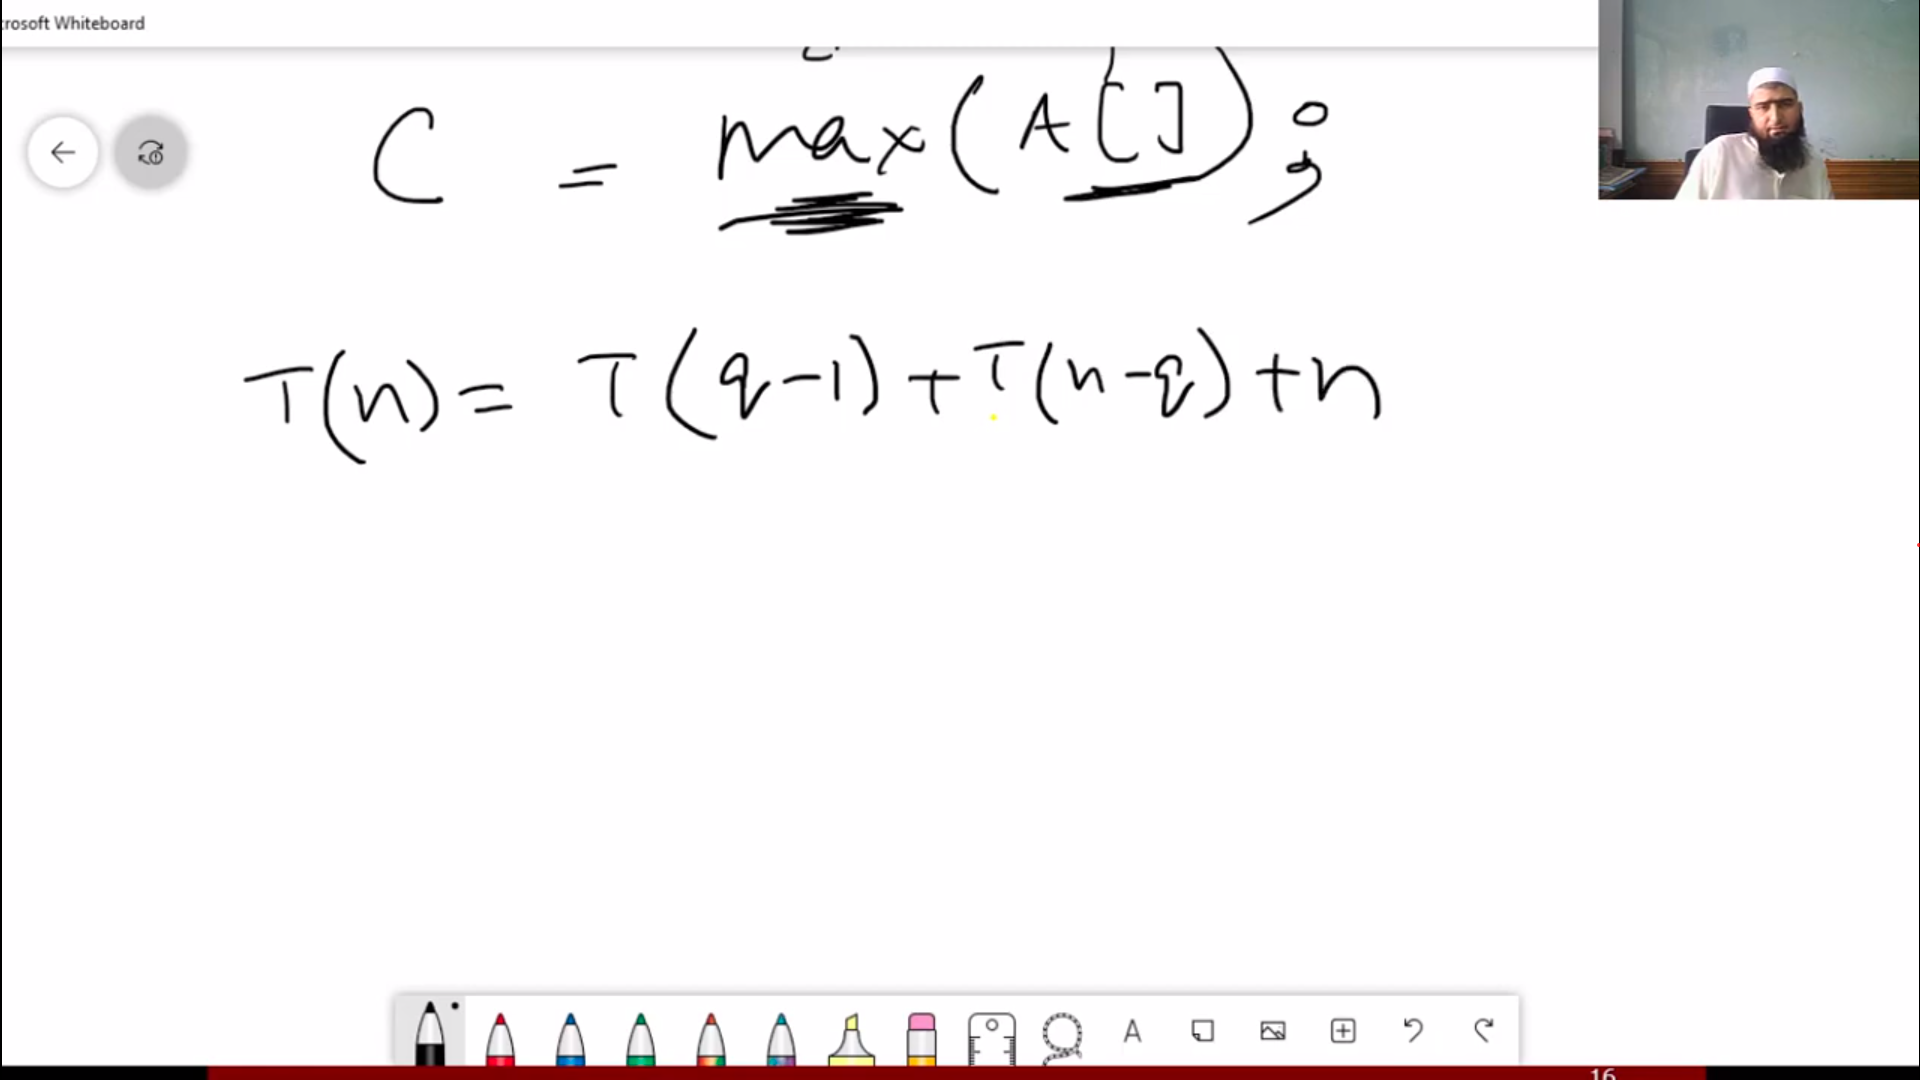 crosoft Whiteboard
C = max(A[]);
T(n) = T(q-1)+T(n-q)+n
A
16